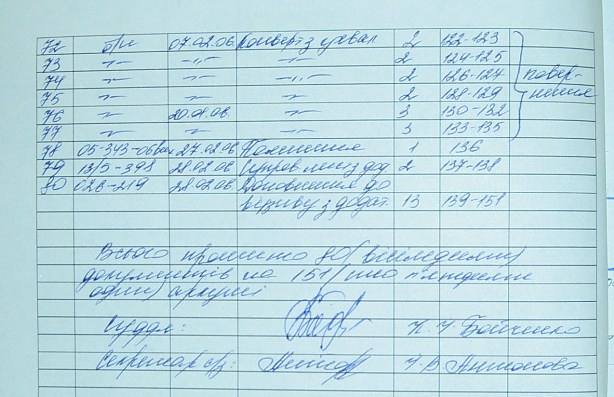 72 б/н 07.02.06 Конверт з увед. 2 122-123
73 —"— —"— —"— 2 124-125
74 —"— —"— —"— 2 126-127 повер-
75 —"— —"— —"— 2 128-129 нення
76 —"— 20.01.06 —"— 3 130-132
77 —"— —"— —"— 3 133-135
78 05-343-06вих 27.02.06 1 136
79 13/5-398 28.02.06 Супров. лист з дод 2 137-138
80 026-219 28.02.06 Доповнення до
з додат. 13 139-151
Всього прошито 80 (вісімдесят)
документів на 151 (сто п'ятдесят
один) аркуші
Суддя: Бойченко
Секретар с/з: Антонова